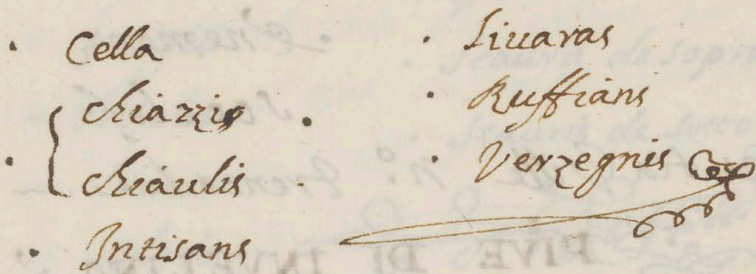 Cella
Chiazzis
Chiaulis
Intisans
Liuaras
Ruffians
Verzegnis